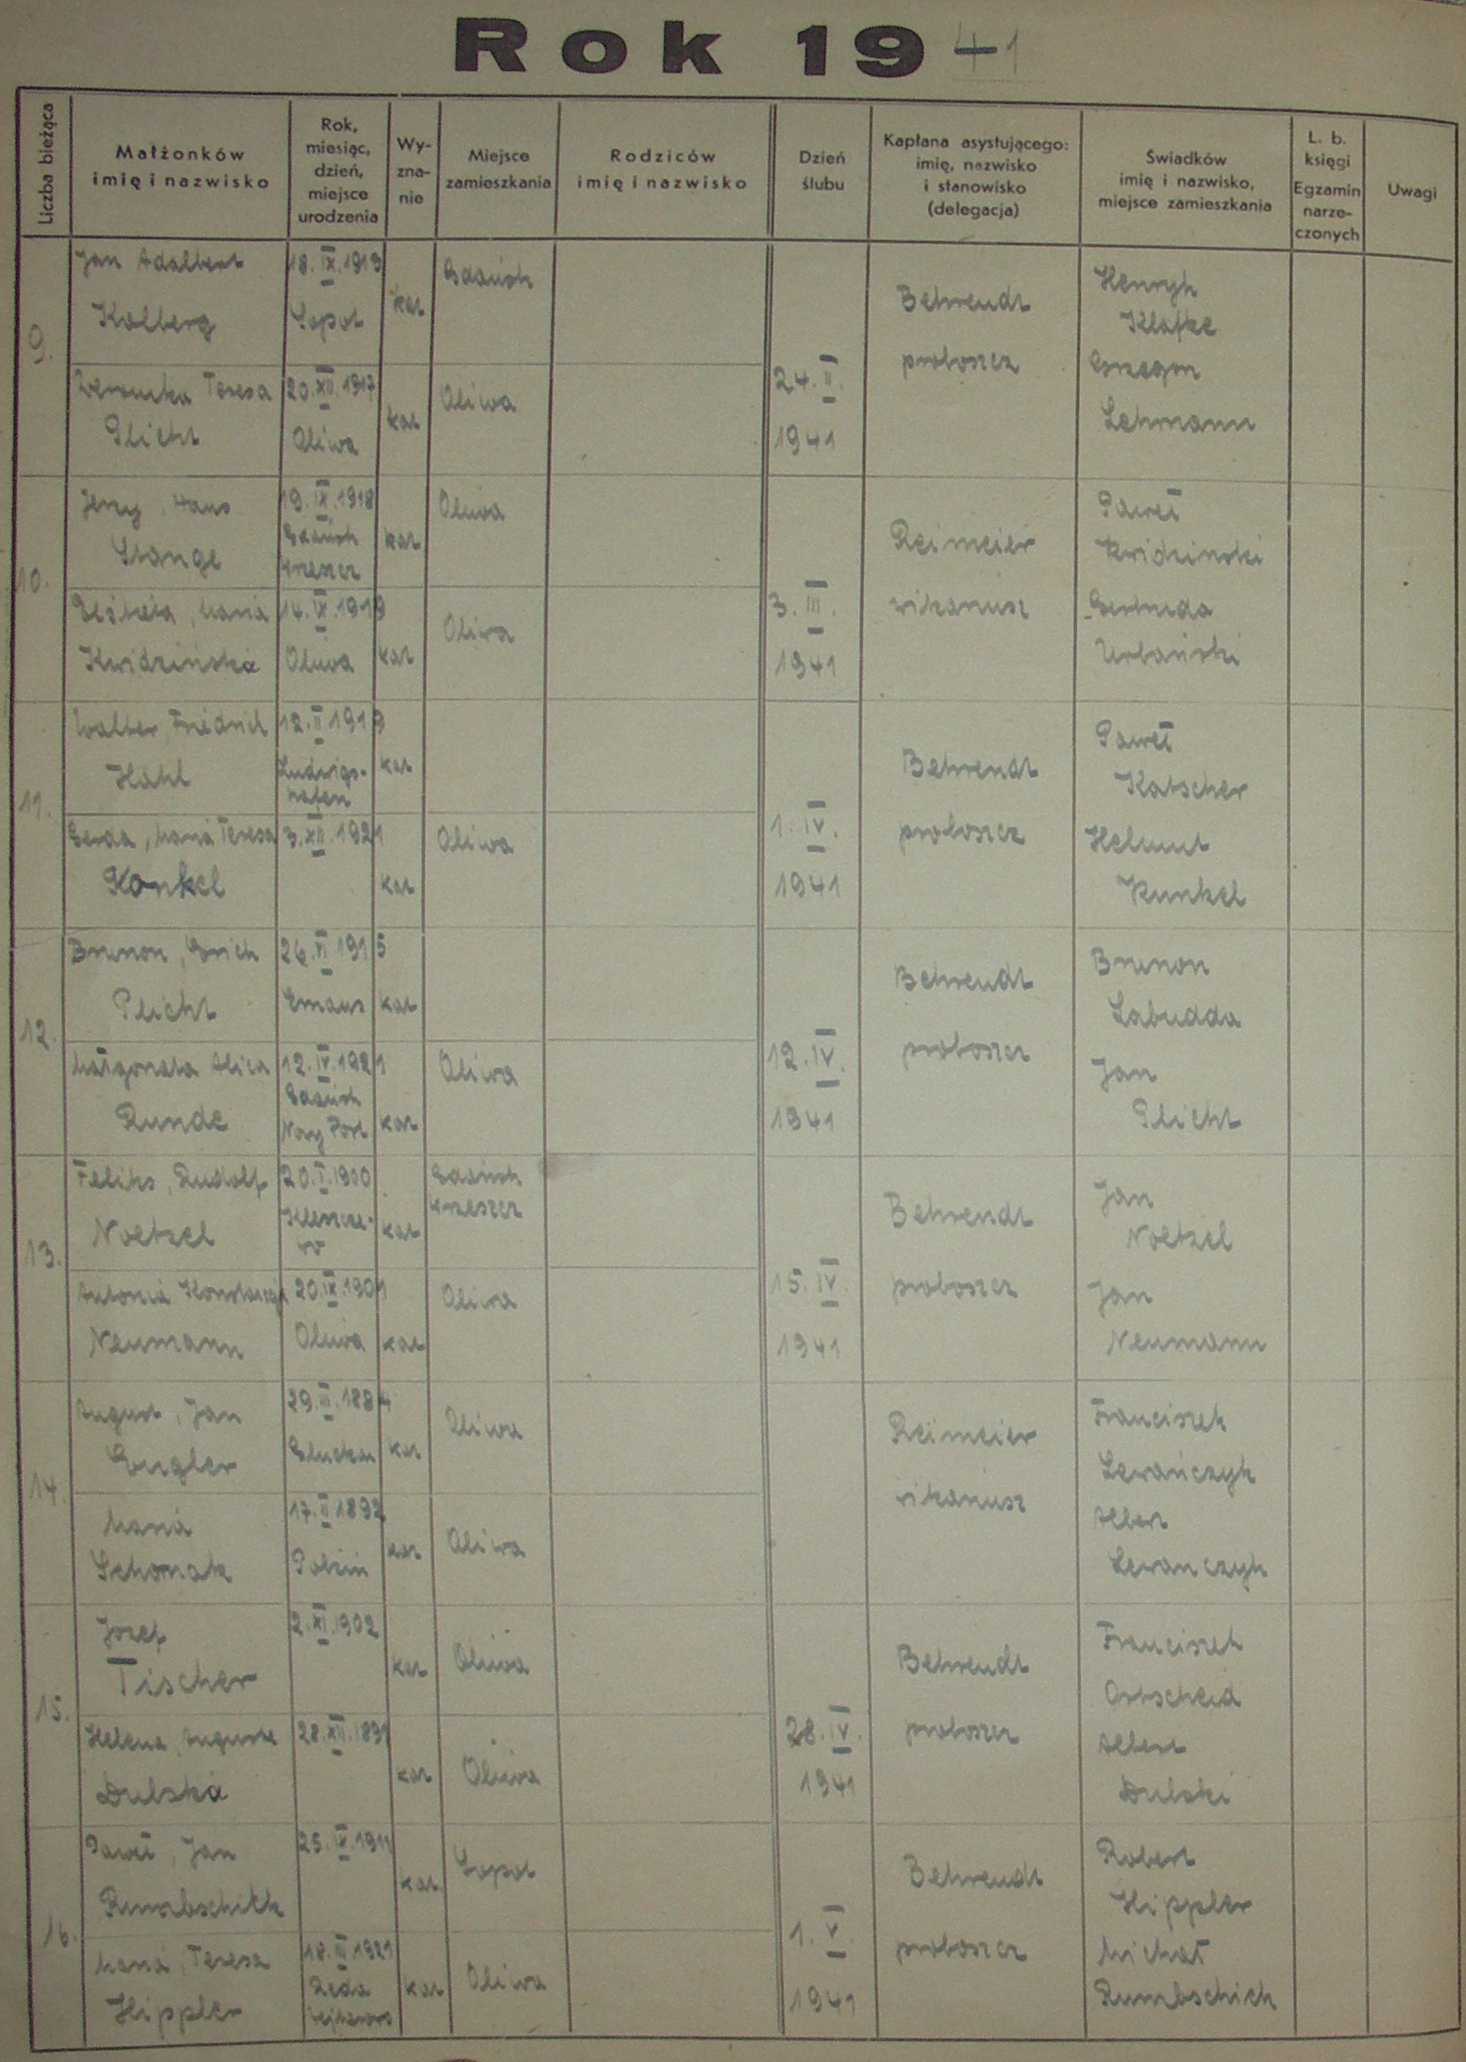 Rok 1941
Liczba bieżąca
Małżonków
imię i nazwisko
Rok,
miesiąc,
dzień,
miejsce
urodzenia
Wy-
zna-
nie
Miejsce
zamieszkania
Rodziców
imię i nazwisko
Dzień
ślubu
Kapłana asystującego:
imię, nazwisko
i stanowisko
(delegacja)
Świadków
imię i nazwisko,
miejsce zamieszkania
L. b.
księgi
Egzamin
narze-
czonych
Uwagi
9.
Jan Adalbert
Kolberg
18.IX.1913
Sopot
kat
Gdańsk
Weronika Teresa
Plicht
20.XII.1917
Oliwa
kat
Oliwa
24.II.
1941
Behrendt
proboszcz
Henryk
Klafke
Grzegorz
Lehmann
10.
Jerzy, Hans
Stange
19.IX.1918
Gdańsk
Wrzeszcz
kat
Oliwa
Elżbieta, Maria
Kwidzińska
14.IX.1919
Oliwa
kat
Oliwa
3.III.
1941
Reimeier
wikariusz
Paweł
Kwidzinski
Gertruda
Urbański
11.
Walter, Friedrich
Hahl
12.II.1919
Ludwigs-
hafen
kat
Gerda, Maria Teresa
Konkel
3.XII.1921
kat
Oliwa
1.IV.
1941
Behrendt
proboszcz
Paweł
Katscher
Helmut
Kunkel
12.
Brunon, Erich
Plicht
26.VI.1915
Emaus
kat
Małgorzata Alicia
Runde
12.IV.1921
Gdańsk
Nowy Port
kat
Oliwa
12.IV.
1941
Behrendt
proboszcz
Brunon
Labudda
Jan
Plicht
13.
Feliks, Rudolf
Noetzel
20.I.1900
Kleszcze-
wo
kat
Gdańsk
Wrzeszcz
Antonia
Neumann
20.IX.1901
Oliwa
kat
Oliwa
15.IV.
1941
Behrendt
proboszcz
Jan
Noetzel
Jan
Neumann
14.
August, Jan
Engler
29.III.1884
kat
Oliwa
Maria
Schornak
17.II.1892
kat
Oliwa
Reimeier
wikariusz
Franciszek
Lewańczyk
Albert
Lewanczyk
15.
Jozef
Tischer
2.XI.1902
kat
Oliwa
Helena, Augusta
Dulska
28.XII.1891
kat
Oliwa
28.IV.
1941
Behrendt
proboszcz
Franciszek
Ortscheid
Albert
Dulski
16.
Paweł, Jan
25.IX.1911
kat.
Sopot
Maria, Teresa
Hippler
18.III.1921
Reda
kat
Oliwa
1.V.
1941
Behrendt
proboszcz
Robert
Hippler
Michał
Rumbschick